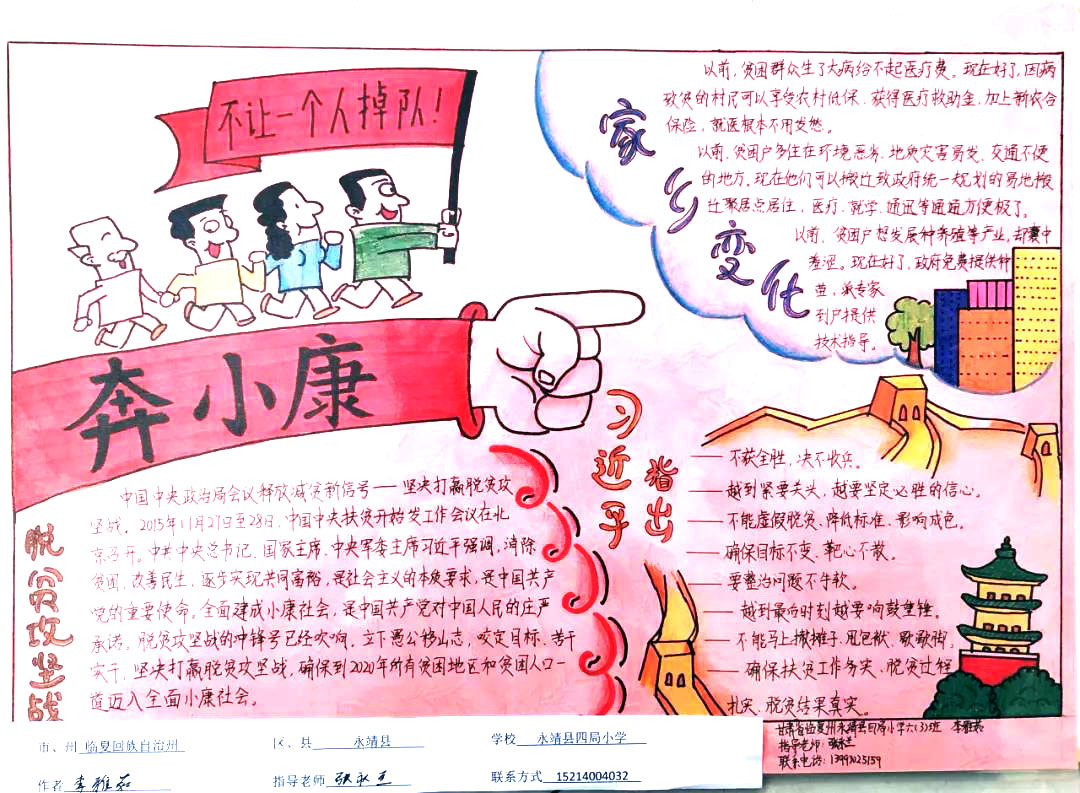 不让一个人掉队！
奔小康
家乡变化
以前，贫困群众生了大病给不起医疗费。现在好了，因病
致贫的村民可以享受农村低保、获得医疗救助金，加上新农合
保险，就医根本不用发愁。
以前，贫困户多住在环境恶劣、地质灾害易发、交通不便
的地方。现在他们可以搬迁致政府统一规划的易地搬
迁聚居点居住，医疗、就学、通讯等通通方便极了。
以前，贫困户想发展种养殖等产业，却囊中
羞涩。现在好了，政府免费提供种
苗，派专家
到户提供
技术指导。
脱贫攻坚战
中国中央政治局会议释放减贫新信号——坚决打赢脱贫攻
坚战。2015年11月27日至28日，中国中央扶贫开始发工作会议在北
京召开。中共中央总书记、国家主席、中央军委主席习近平强调，消除
贫困、改善民生、逐步实现共同富裕，是社会主义的本质要求，是中国共产
党的重要使命。全面建成小康社会，是中国共产党对中国人民的庄严
承诺。脱贫攻坚战的冲锋号已经吹响。立下愚公移山志，咬定目标、苦干
实干，坚决打赢脱贫攻坚战，确保到2020年所有贫困地区和贫困人口一
道迈入全面小康社会。
习近平
指出
——不获全胜，决不收兵。
——越到紧要关头，越要坚定必胜的信心。
——不能虚假脱贫、降低标准、影响成色。
——确保目标不变、靶心不散。
——要整治问题不手软。
——越到最后时刻越要响鼓重锤。
——不能马上撤摊子、甩包袱、歇歇脚；
——确保扶贫工作务实、脱贫过程
扎实、脱贫结果真实。
甘肃省临夏州永靖县四局小学六(3)班 李雅茹
指导老师：张永兰
联系电话：
市、州 临夏回族自治州 区、县 永靖县 学校 永靖县四局小学
作者 李雅茹 指导老师 联系方式 15214004032